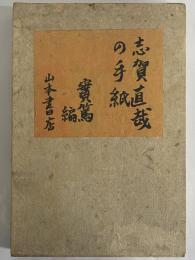 志賀直哉
の手紙
實篤
編
山本書店